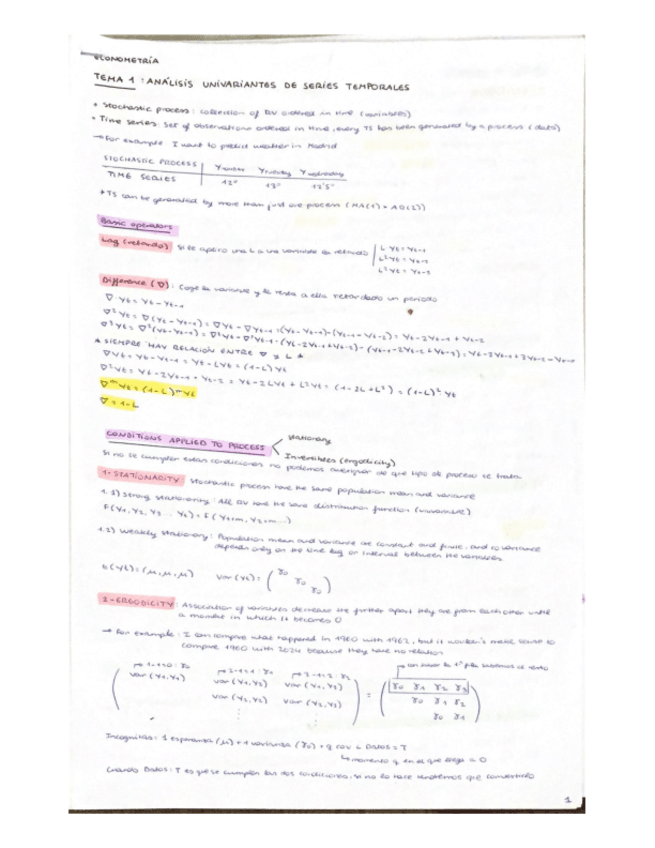 ECONOMETRÍA
TEMA 1: ANÁLISIS UNIVARIANTES DE SERIES TEMPORALES
• Stochastic process: collection of RV ordered in time (variables)
• Time series: set of observations ordered in time, every TS has been generated by a process (data)
→ For example: I want to predict weather in Madrid
STOCHASTIC PROCESS | Ymonday Ytuesday Ywednesday
TIME SERIES | 12° 13° 12'5°
* TS can be generated by more than just one process (MA(1) = AR(2))
Basic operators
Lag (retardo) Si le aplico una L a una variable la retardo | L Yt = Yt-1
L² Yt = Yt-2
L² Yt = Yt-2
Difference (∇): Coge la variable y le resta a ella retardado un periodo
∇ Yt = Yt - Yt-1
∇² Yt = ∇(Yt - Yt-1) = ∇Yt - ∇Yt-1 = (Yt - Yt-1) - (Yt-1 - Yt-2) = Yt - 2Yt-1 + Yt-2
∇³ Yt = ∇²(Yt - Yt-1) = ∇²Yt - ∇²Yt-1 = (Yt - 2Yt-1 + Yt-2) - (Yt-1 - 2Yt-2 + Yt-3) = Yt - 3Yt-1 + 3Yt-2 - Yt-3
* SIEMPRE HAY RELACIÓN ENTRE ∇ y L *
∇Yt = Yt - Yt-1 = Yt - LYt = (1-L) Yt
∇²Yt = Yt - 2Yt-1 + Yt-2 = Yt - 2LYt + L²Yt = (1 - 2L + L²) = (1-L)² Yt
∇ᵐ Yt = (1-L)ᵐ Yt
∇ = 1-L
CONDITIONS APPLIED TO PROCESS < Stationary
Invertibles (ergodicity)
Si no se cumplen estas condiciones no podemos averiguar de que tipo de proceso se trata
1- STATIONARITY: Stochastic process have the same population mean and variance
1.1) Strong stationarity: All RV have the same distribution function (univariable)
F(Y1, Y2, Y3 ... Yt) = F(Y1+m, Y2+m...)
1.2) Weakly stationary: Population mean and variance are constant and finite, and covariance
depends only on the time lag or interval between the variables
E(Yt) = (μ, μ, μ) Var(Yt) = (γ0 γ0 γ0)
2- ERGODICITY: Association of variables decrease the further apart they are from each other until
a moment in which it becomes 0
→ For example: I can compare what happened in 1960 with 1962, but it wouldn't make sense to
compare 1960 with 2024 because they have no relation
1-1=0: γ0 2-1=1: γ1 3-1=2: γ2
Var(Y1,Y1) Var(Y1,Y2) Var(Y1,Y3)
Var(Y2,Y2) Var(Y2,Y3)
= γ0 γ1 γ2 γ3
γ0 γ1 γ2
γ0 γ1
Incognitas: 1 esperanza (μ) + 1 varianza (γ0) + q cov ∠ Datos = T
↳ momento q en el que llega a 0
Cuando Datos: T es que se cumplen las dos condiciones, si no lo hace tendremos que convertirlo
1